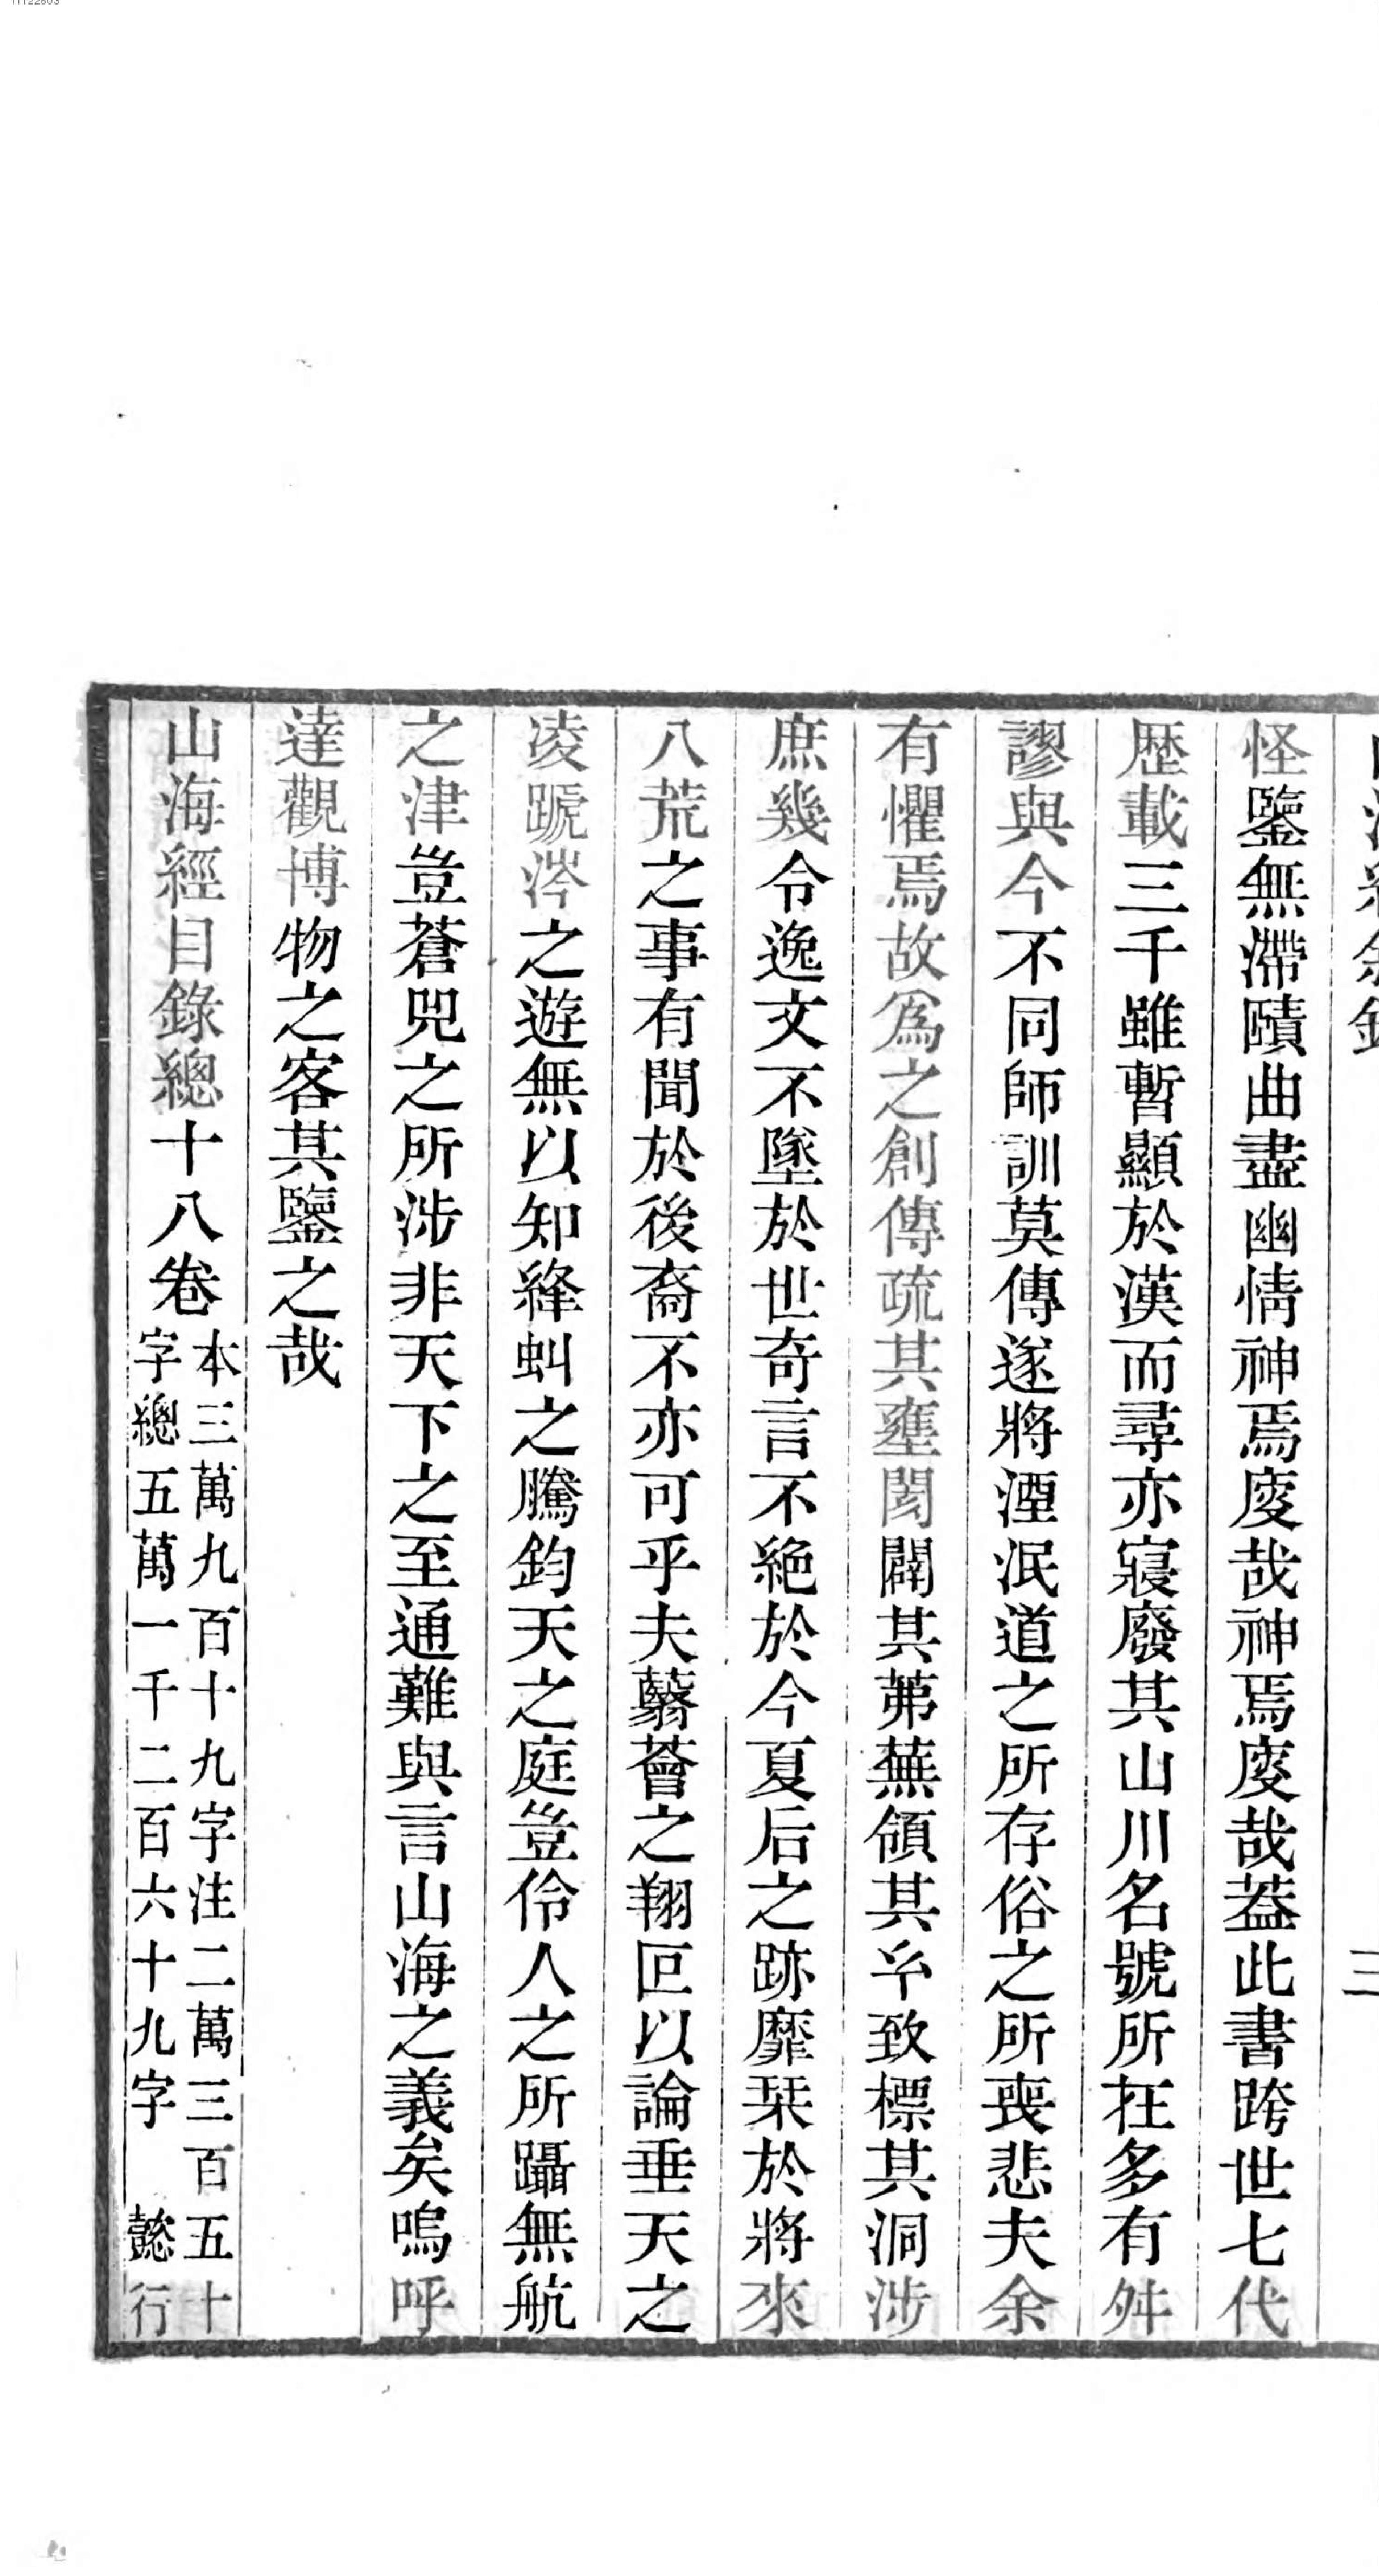 怪鑒無滯賾曲盡幽情神焉廋哉神焉廋哉蓋此書跨世七代
歷載三千雖暫顯於漢而尋亦寢廢其山川名號所在多有舛
謬與今不同師訓莫傳遂將湮泯道之所存俗之所喪悲夫余
有懼焉故爲之創傳疏其壅閡闢其茀蕪領其玄致標其洞涉
庶幾令逸文不墜於世奇言不絕於今夏后之跡靡栞於將來
八荒之事有聞於後裔不亦可乎夫蘙薈之翔叵以論垂天之
凌蹏涔之遊無以知絳虯之騰鈞天之庭豈伶人之所躡無航
之津豈蒼兕之所涉非天下之至通難與言山海之義矣嗚呼
達觀博物之客其鑒之哉
山海經目錄總十八卷
本三萬九百十九字注二萬三百五十
字總五萬一千二百六十九字 懿行
三